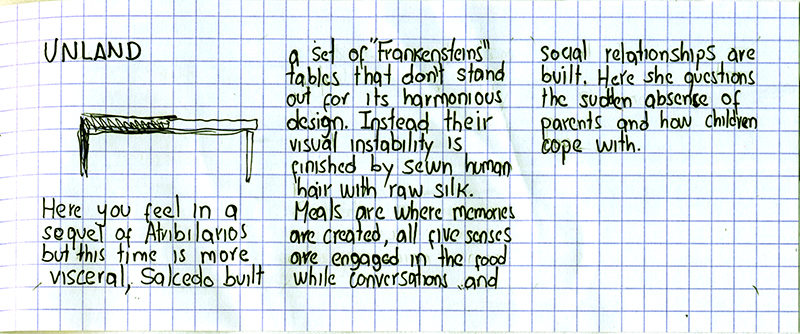 UNLAND
Here you feel in a
sequel of Atribilarios
but this time is more
visceral, Salcedo built
a set of "Frankensteins"
tables that don't stand
out for its harmonious
design. Instead their
visual instability is
finished by sewn human
hair with raw silk.
Meals are where memories
are created, all five senses
are engaged in the food
while conversations and
social relationships are
built. Here she questions
the sudden absence of
parents and how children
cope with.